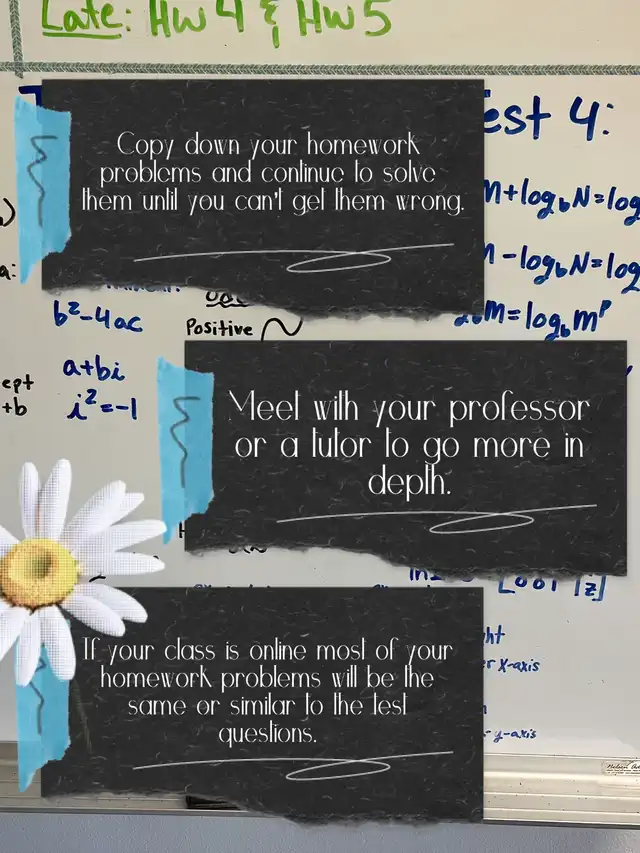 Late: Hw 4 & Hw 5
est 4:
Copy down your homework
problems and continue to solve
them until you can't get them wrong.
M+log_b N=log
-log_b N=log
a:
b²-4ac
Positive
M=log_b m^p
a+bi
ept
+b
i²=-1
Meet with your professor
or a tutor to go more in
depth.
If your class is online most of your
homework problems will be the
same or similar to the test
questions.
ht
r x-axis
y-axis